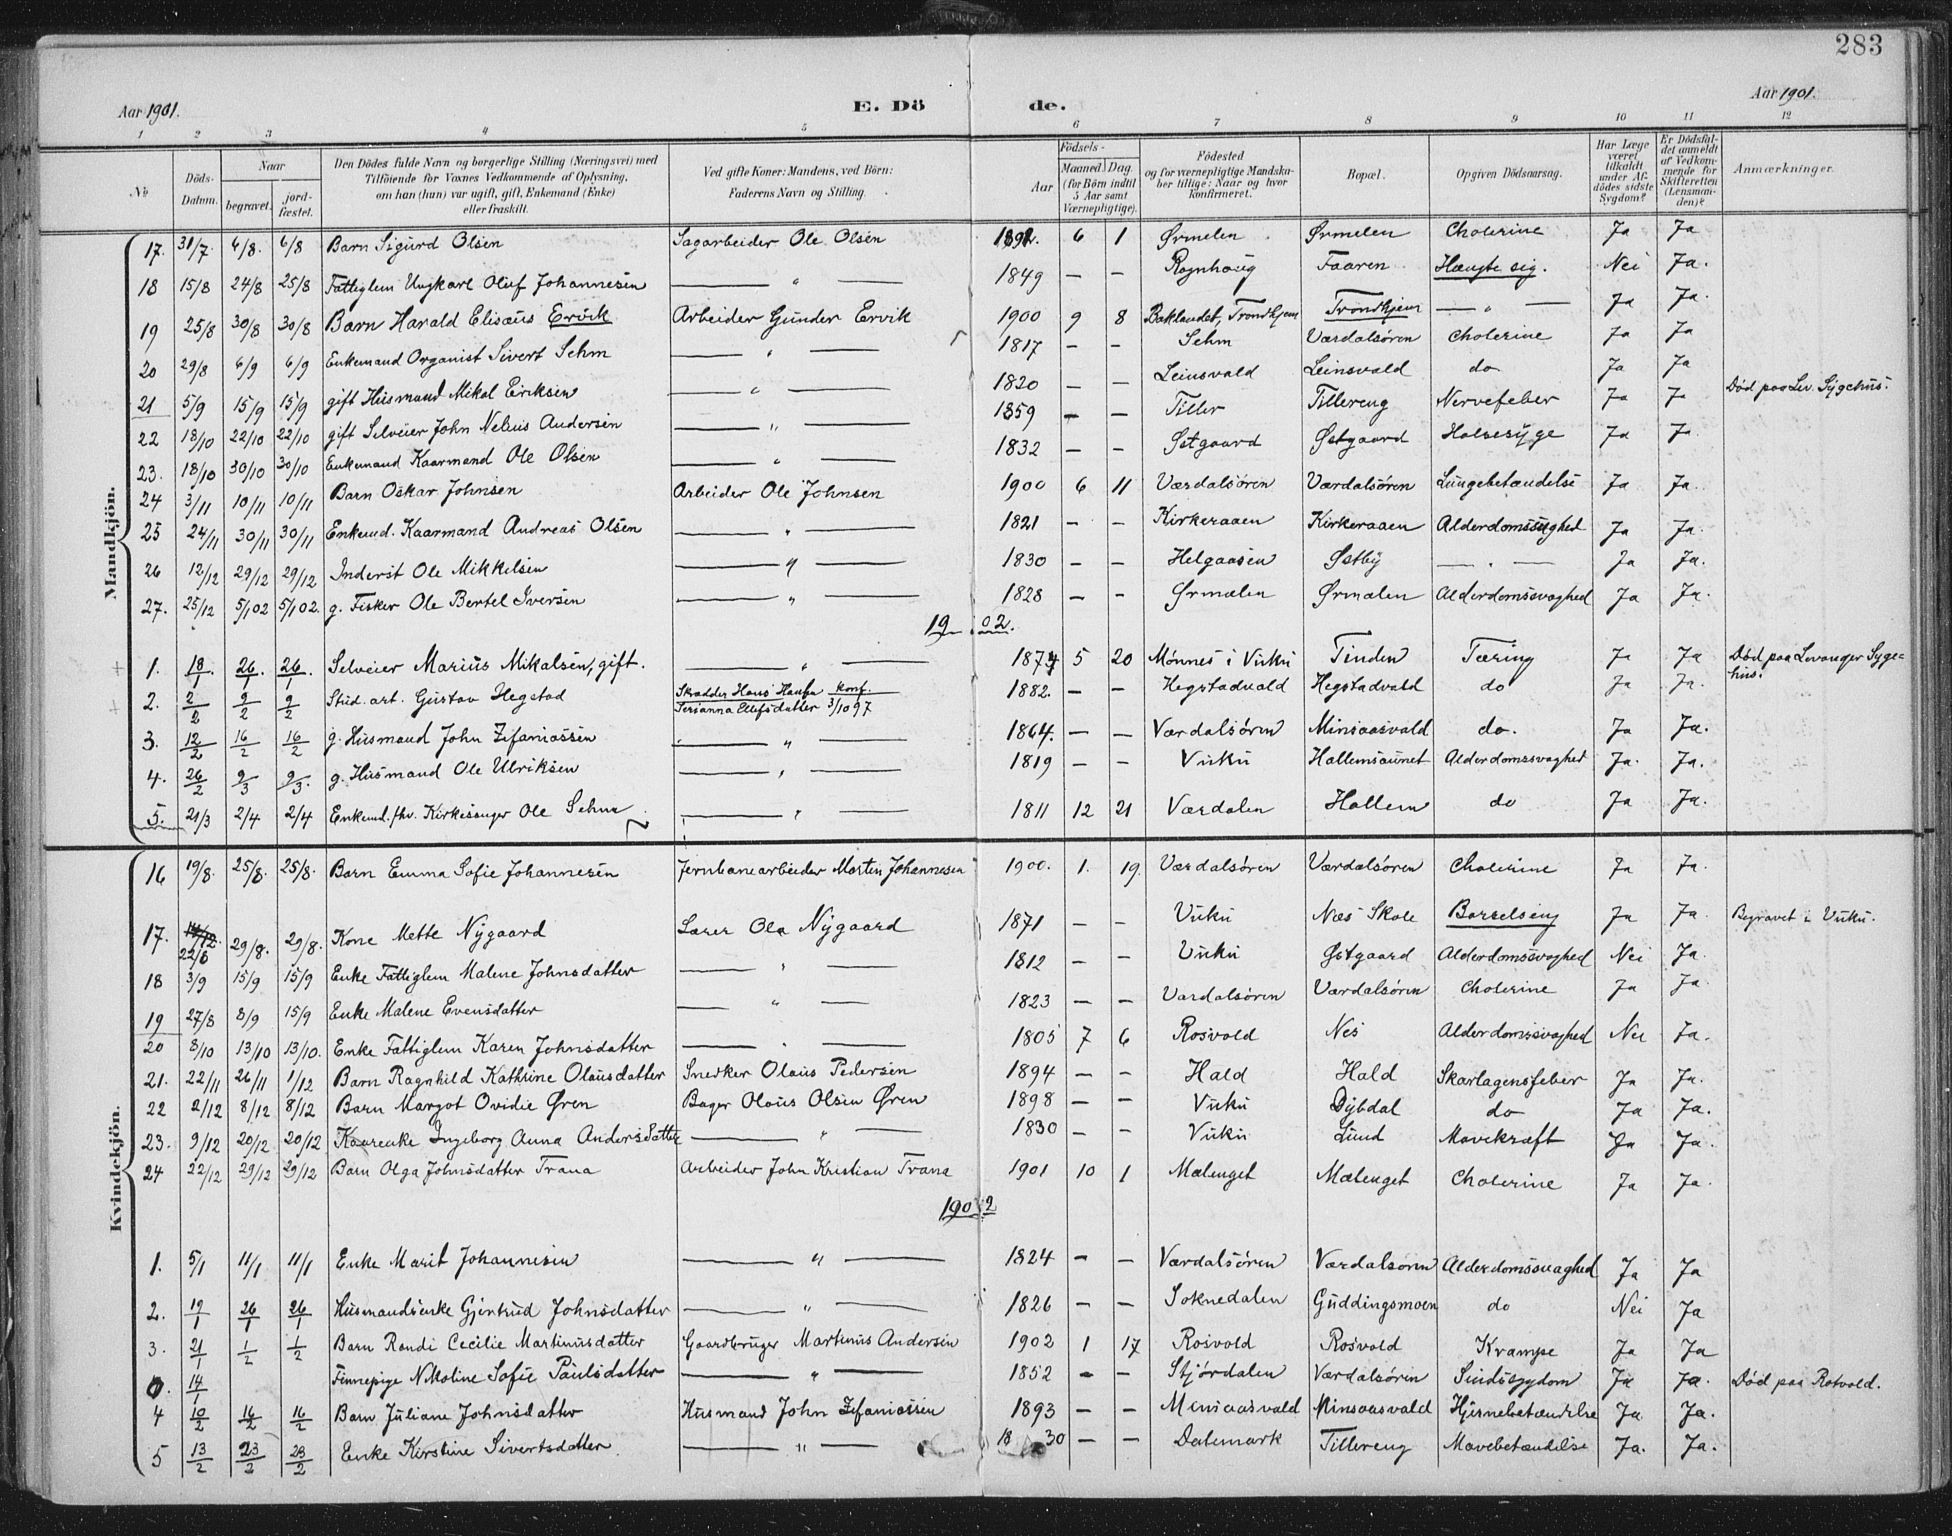 283
Aar 1901. E. Dö de. Aar 1901.
1 2 3 4 5 6 7 8 9 10 11 12
No Döds-Datum. Naar begravet. jordfæstet. Den Dödes fulde Navn og borgerlige Stilling (Næringsvei) med Tilföiende for Voxnes Vedkommende af Oplysning, om han (hun) var ugift, gift, Enkemand (Enke) eller fraskilt. Ved gifte Koner: Mandens, ved Börn: Faderens Navn og Stilling. Födsels- Aar Maaned Dag. (for Börn indtil 5 Aar samt Værnepligtige). Födested og for værnepligtige Mandskaber tillige: Naar og hvor konfirmeret. Bopæl. Opgiven Dödsaarsag. Har Læge været tilkaldt under Afdödes sidste Sygdom? Er Dödsfaldet anmeldt af Vedkommende for Skifteretten (Lensmanden)? Anmærkninger.
Mandkjön.
17. 31/7. 6/8. 6/8 Barn Sigurd Olsen Sagarbeider Ole Olsen 6 1 Ørmelen Ørmelen Cholerine Ja Ja
18 15/8 24/8 25/8 Fattiglem Ungkarl Oluf Johannesen — " — 1849 — — Rognhoug Faaren Hængte sig. Nei Ja.
19 25/8 30/8 30/8 Barn Harald Elisæus Ervik Arbeider Gunder Ervik 1900 9 8 Baklandet, Trondhjem Trondhjem — " — Ja Ja.
20 29/8 6/9 6/9 Enkemand Organist Sivert Sehm — " — 1817 — — Sehm Værdalsören Cholerine Ja Ja
21 5/9 15/9 15/9 gift Husmand Mikal Eriksen — " — 1820 — — Leinsvald Leinsvald do Ja Ja
22 18/10 22/10 22/10 gift Selveier John Nelius Andersen — " — 1859 — — Tiller Tillereng Nervefeber Ja Ja Död paa Lev. Sygehus.
23. 18/10 30/10 30/10 Enkemand Kaarmand Ole Olsen — " — 1832 — — Østgaard Østgaard Halsesyge Ja Ja.
24 3/11 10/11 10/11 Barn Oskar Johnsen Arbeider Ole Johnsen 1900 6 11 Værdalsören Værdalsören Lungebetændelse Ja Ja.
25 24/11 30/11 30/11 Enkemd. Kaarmand Andreas Olsen — " — 1821 — — Kirkeraaen Kirkeraaen Alderdomssvaghed Ja Ja.
26 12/12 29/12 29/12 Inderst Ole Mikkelsen — " — 1830 — — Helgaasen Østby — " — Ja Ja.
27. 25/12 5/1 02 5/1 02. g. Fisker Ole Bertel Iversen — " — 1828 — — Ørmelen Ørmelen Alderdomssvaghed Ja Ja.
1902.
1. 18/1. 26/1. 26/1. Selveier Marius Mikalsen, gift. — " — 1874 5 20 Mönnes i Vuku Tinden Tæring Ja Ja Död paa Levanger Sygehus.
2. 2/2 9/2 9/2 Stud. art. Gustav Hegstad Skrædder Hans Hansen Serianna Ellefsdatter konf. 3/10 97 1882. — — Hegstadvald Hegstadvald do Ja Ja.
3. 12/2 16/2 16/2 g. Husmand John Zefaniassen — " — 1864. — — Værdalsören Minsaasvald do. Ja Ja.
4. 26/2 9/3 9/3. g. Husmand Ole Ulriksen — " — 1819 — — Vuku Hallemsaunet Alderdomssvaghed Ja. Ja.
5. 21/3 2/4 2/4 Enkemd. fhv. Kirkesanger Ole Sehm — " — 1811 12 21 Værdalen Hallem do Ja Ja.
Kvindekjön.
16 19/8. 25/8. 25/8. Barn Emma Sofie Johannesen Jernbanearbeider Morten Johannesen 1900. 1. 19 Værdalsören Værdalsören Cholerine Ja Ja.
17. 22/8 29/8. 29/8. Kone Mette Nygaard Lærer Ola Nygaard 1871 — — Vuku Næs Skole Barselseng Ja Ja. Begravet i Vuku.
18 3/9 15/9 15/9 Enke Fattiglem Malene Johnsdatter — " — 1812 — — Vuku Østgaard Alderdomssvaghed Nei Ja.
19 27/8 8/9 15/9 Enke Malene Evensdatter — " — 1823 — — Værdalsören Værdalsören Cholerine Ja Ja.
20 8/10 13/10 13/10. Enke Fattiglem Karen Johnsdatter — " — 1805 7 6 Rosvold Nes Alderdomssvaghed Nei Ja.
21. 22/11 26/11 1/12 Barn Ragnhild Kathrine Olausdatter Snedker Olaus Pedersen 1894 — — Hald Hald Skarlagensfeber Ja Ja.
22 2/12 8/12 8/12 Barn Margot Ovidie Øren Bager Olaus Olsen Øren 1898 — — Vuku Dybdal do Ja Ja.
23. 9/12 20/12 20/12 Kaarenke Ingeborg Anna Andersdatter — " — 1830 — — Vuku Lund Mavekræft Ja Ja.
24 22/12 29/12 29/12 Barn Olga Johnsdatter Trana Arbeider John Kristian Trana 1901 10 1 Mælenget Mælenget Cholerine Ja Ja.
1902
1. 5/1 11/1 11/1 Enke Marit Johannesen — " — 1824 — — Værdalsören Værdalsören Alderdomssvaghed Ja Ja
2. 19/1 26/1 26/1 Husmandsenke Gjertrud Johnsdatter — " — 1826 — — Soknedalen Guddingsmoen do Nei Ja
3. 21/1 1/2 1/2 Barn Randi Cecilie Martinusdatter Gaardbruger Martinus Andersen 1902 1 17 Rosvold Rosvold Krampe Ja Ja
0. 14/1 Finnepige Nikoline Sofie Paulsdatter — " — 1852 — — Stjördalen Værdalsören Sindssygdom Ja Ja. Död paa Rotvold.
4 10/2 16/2 16/2 Barn Juliane Johnsdatter Husmand John Zefaniassen 1893 — — Minsaasvald Minsaasvald Hjernebetændelse Ja Ja.
5 13/2 23/2 23/2 Enke Kirstine Sivertsdatter — " — 1830 — — Dalemark Tillereng Mavebetændelse Ja. Ja.